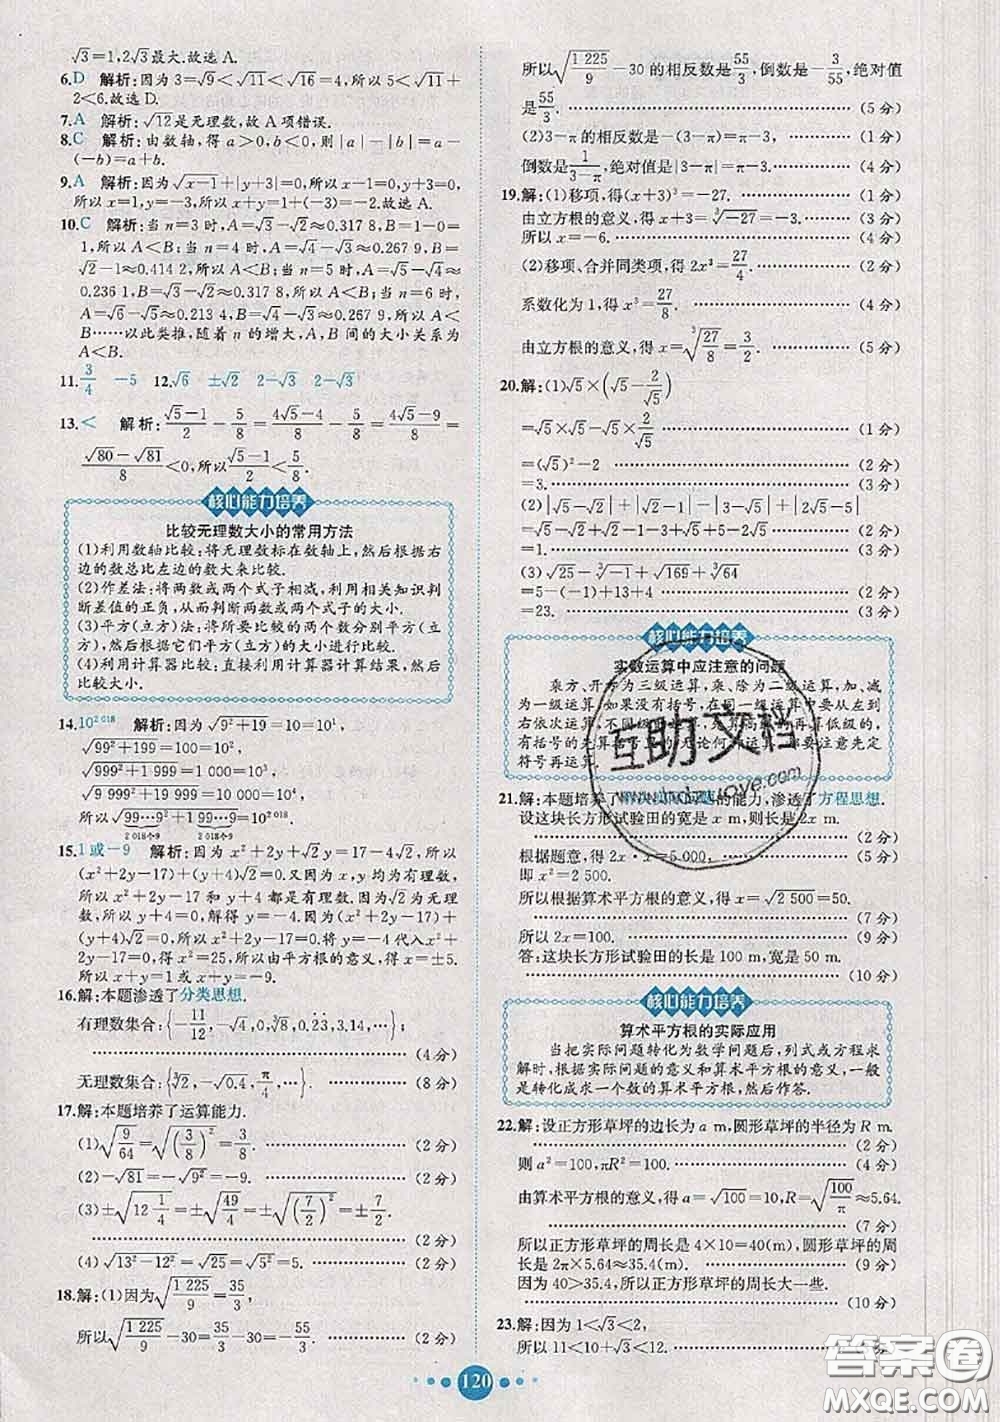 √3=1,2√3最大.故选A.
6.D 解析:因为3=√9<√11<√16=4,所以5<√11+
2<6.故选D.
7.A 解析:√12是无理数,故A项错误.
8.C 解析:由数轴,得a>0,b<0,则|a|-|b|=a-
(-b)=a+b.
9.A 解析:因为√x-1+|y+3|=0,所以x-1=0,y+3=0.
所以x=1,y=-3,所以x+y=1+(-3)=-2.故选A.
10.C 解析:当n=3时,A=√3-√2≈0.317 8,B=1-0=
1,所以A<B;当n=4时,A=√4-√3≈0.267 9,B=
√2-1≈0.414 2,所以A<B;当n=5时,A=√5-√4≈
0.236 1,B=√3-√2≈0.317 8,所以A<B;当n=6时,
A=√6-√5≈0.213 4,B=√4-√3≈0.267 9,所以A<
B……以此类推,随着n的增大,A,B间的大小关系为
A<B.
11.3/4 -5 12.√6 ±√2 2-√3 2-√3
13.< 解析:(√5-1)/2-5/8=(4√5-4)/8-5/8=(4√5-9)/8=
(√80-√81)/8<0,所以(√5-1)/2<5/8.
核心能力培养
比较无理数大小的常用方法
(1)利用数轴比较:将无理数标在数轴上,然后根据右
边的数总比左边的数大来比较.
(2)作差法:将两数或两个式子相减,利用相关知识判
断差值的正负,从而判断两数或两个式子的大小.
(3)平方(立方)法:将所要比较的两个数分别平方(立
方),使其转化为比较两个平方(立方)数的大小进行比较.
(4)利用计算器比较:直接利用计算器计算结果,然后
比较大小.
14.10²⁰¹⁸ 解析:因为√(9²+19)=10=10¹,
√(99²+199)=100=10²,
√(999²+1 999)=1 000=10³,
√(9 999²+19 999)=10 000=10⁴,
所以√(99…9²+199…9)=10²⁰¹⁸.
2 018个9 2 018个9
15.1或-9 解析:因为x²+2y+√2y=17-4√2,所以
(x²+2y-17)+(y+4)√2=0.又因为x,y均为有理数,
所以x²+2y-17和y+4都是有理数.因为√2为无理
数,所以y+4=0,解得y=-4.因为x²+2y-17+
(y+4)√2=0,所以x²+2y-17=0,将y=-4代入x²+
2y-17=0,得x²=25,所以由平方根的意义,得x=±5.
所以x+y=1或x+y=-9.
16.解:本题渗透了分类思想.
有理数集合:{-11/12,-√4,0,∛8,0.2̇3̇,3.14,…};
(4分)
无理数集合:{∛2,-√0.4,π/4,…}. (8分)
17.解:本题培养了运算能力.
(1)√(9/64)=√((3/8)²)=3/8. (2分)
(2)-√81=-√9²=-9. (2分)
(3)±√(12 1/4)=±√(49/4)=±√((7/2)²)=±7/2.
(2分)
(4)√(13²-12²)=√25=√5²=5. (2分)
18.解:(1)因为√(1 225/9)=35/3,
所以√(1 225/9)-30=35/3-30=-55/3. (2分)
所以√(1 225/9)-30的相反数是55/3,倒数是-3/55,绝对值
是55/3. (5分)
(2)3-π的相反数是-(3-π)=π-3, (1分)
倒数是1/(3-π),绝对值是|3-π|=π-3. (4分)
19.解:(1)移项,得(x+3)³=-27. (1分)
由立方根的意义,得x+3=∛-27=-3. (3分)
所以x=-6. (4分)
(2)移项、合并同类项,得2x³=27/4. (2分)
系数化为1,得x³=27/8. (4分)
由立方根的意义,得x=∛(27/8)=3/2. (5分)
20.解:(1)√5×(√5-2/√5)
=√5×√5-√5×2/√5 (1分)
=(√5)²-2 (2分)
=3. (3分)
(2)|√5-√2|+|√2-1|-|2√5-5|
=√5-√2+√2-1+√5+2√5-5 (2分)
=1. (3分)
(3)√25-∛-1+√169+∛64
=5-(-1)+13+4 (2分)
=23. (3分)
核心能力培养
实数运算中应注意的问题
乘方、开方为三级运算,乘、除为二级运算,加、减
为一级运算,如果没有括号,在同一级运算中要从左到
右依次运算,不同级的运算,先算高级的再算低级的,
有括号的先算括号里的,无论何种运算,都要注意先定
符号再运算.
21.解:本题培养了解决实际问题的能力,渗透了方程思想.
设这块长方形试验田的宽是x m,则长是2x m.
(2分)
根据题意,得2x·x=5 000, (5分)
即x²=2 500.
所以根据算术平方根的意义,得x=√2 500=50.
(7分)
所以2x=100. (9分)
答:这块长方形试验田的长是100 m,宽是50 m.
(10分)
核心能力培养
算术平方根的实际应用
当把实际问题转化为数学问题后,列式或方程求
解时,根据实际问题的意义和算术平方根的意义,一般
是转化成求一个数的算术平方根,然后作答.
22.解:设正方形草坪的边长为a m,圆形草坪的半径为R m.
(2分)
则a²=100,πR²=100. (4分)
由算术平方根的意义,得a=√100=10,R=√(100/π)≈5.64.
(7分)
所以正方形草坪的周长是4×10=40(m),圆形草坪的周
长是2π×5.64≈35.4(m). (9分)
因为40>35.4,所以正方形草坪的周长大一些.
(10分)
23.解:因为1<√3<2,
所以11<10+√3<12. (2分)
120
互助文档
答案圈
MXQE.COM